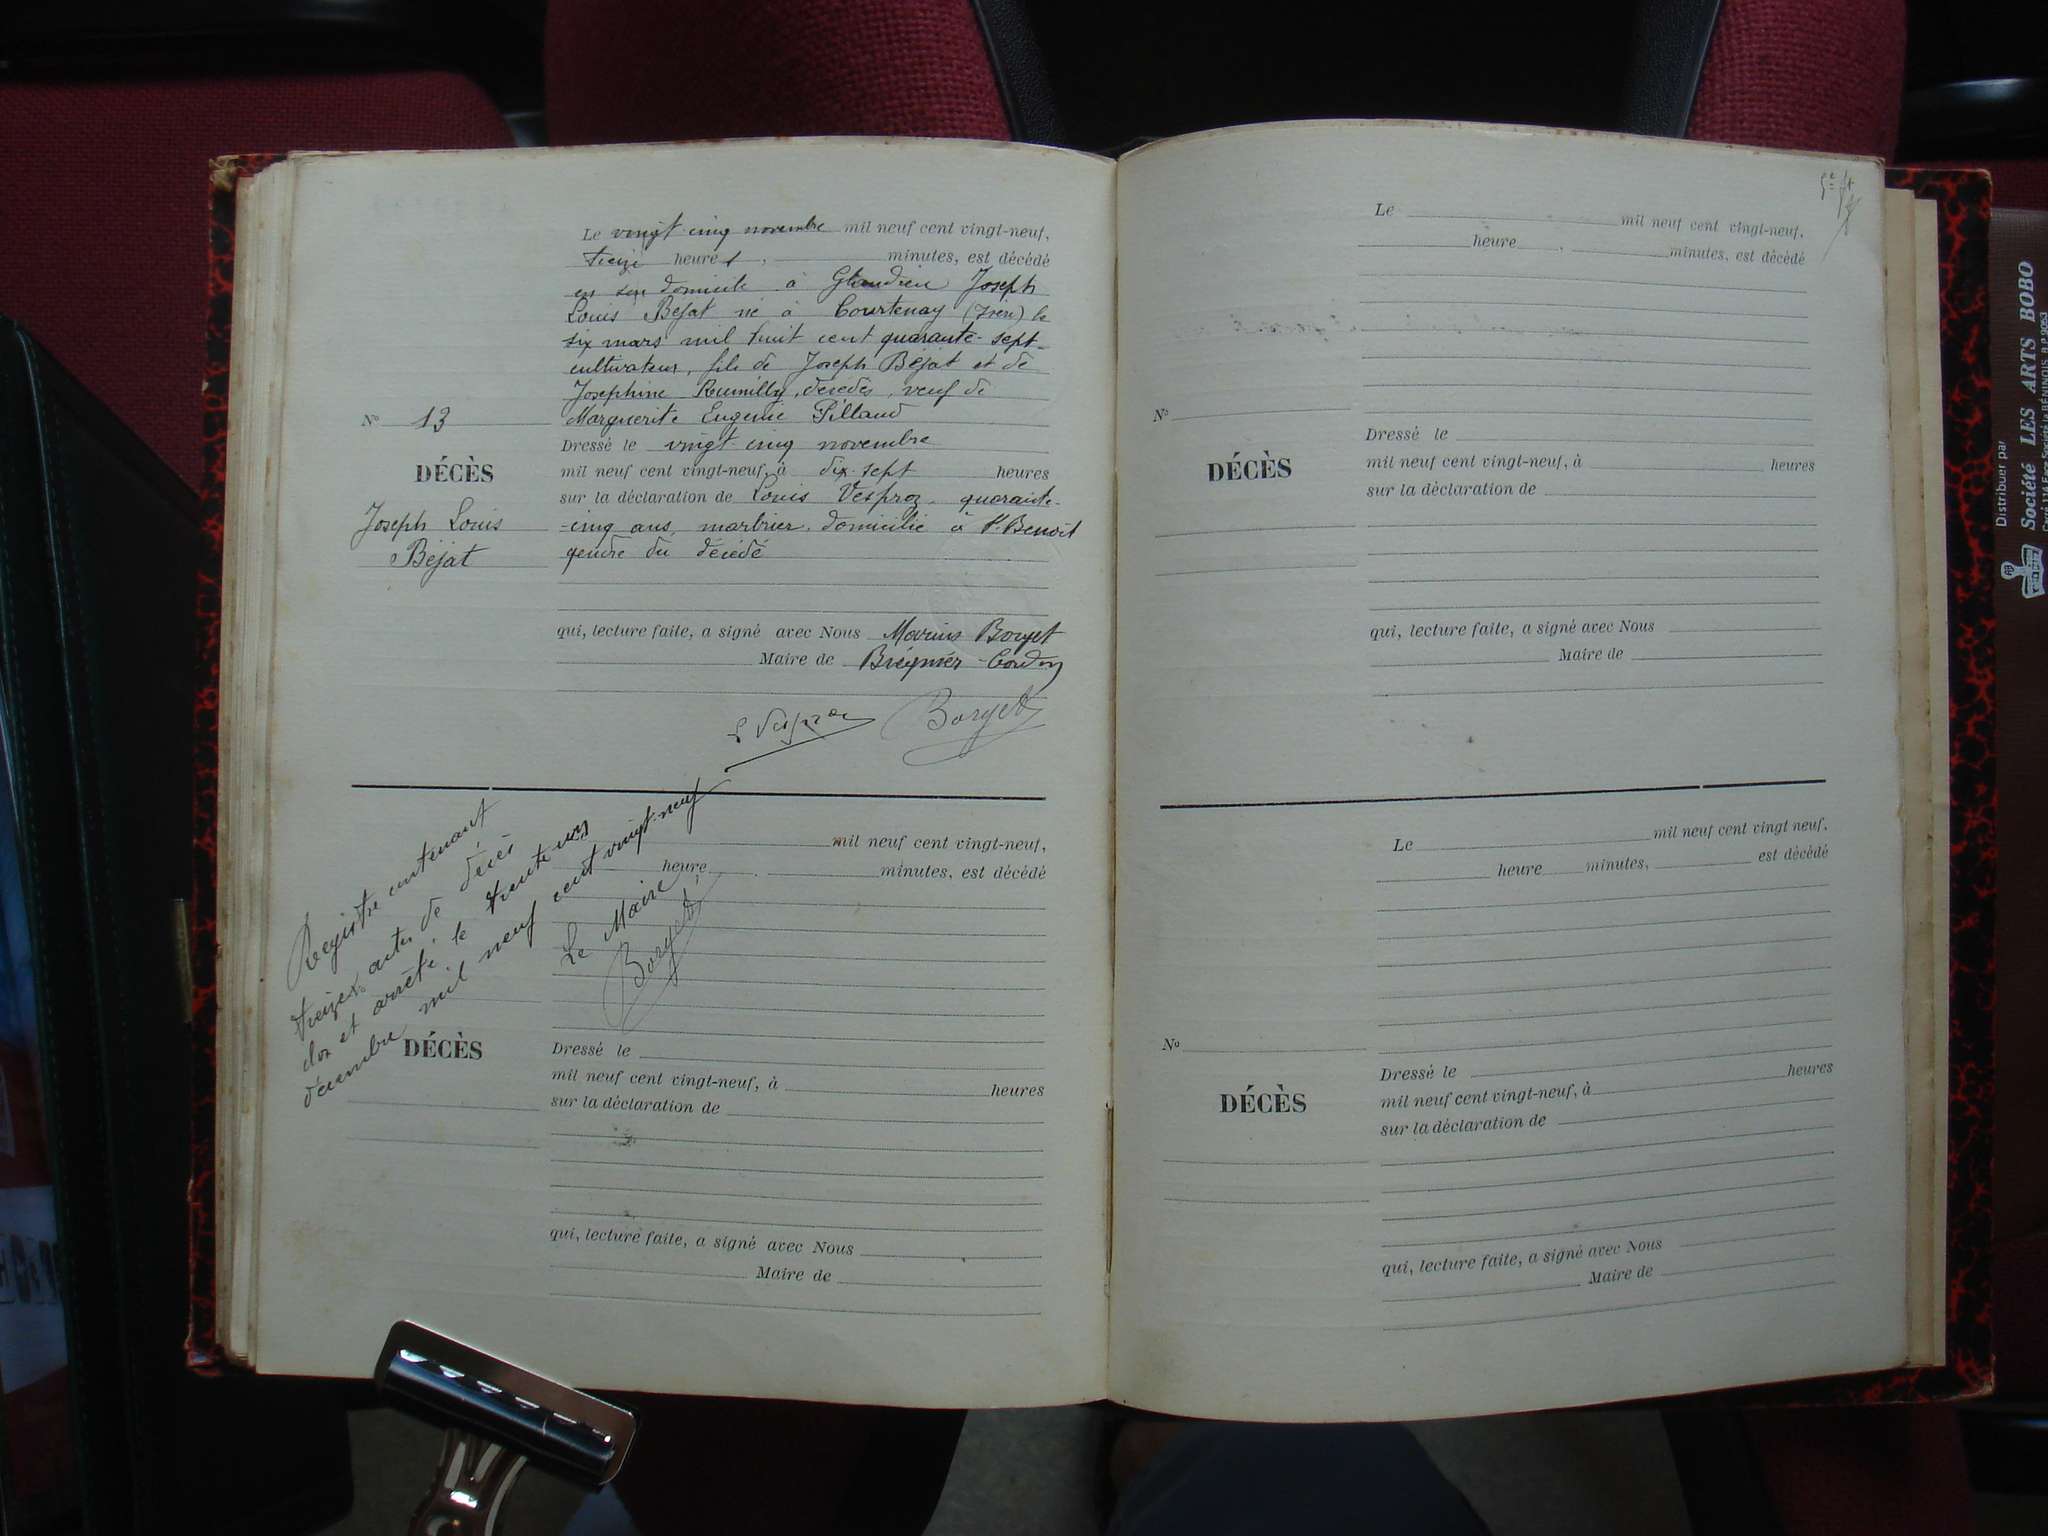 Le vingt cinq novembre mil neuf cent vingt-neuf,
treize heures, minutes, est décédé
en son domicile à Glandieu Joseph
Louis Béjat né à Courtenay (Isère) le
six mars mil huit cent quarante-sept
cultivateur, fils de Joseph Béjat et de
Josephine Rumilly, décédés, veuf de
Marguerite Eugenie Pillaud
N° 13
DÉCÈS
Joseph Louis
Béjat
Dressé le vingt cinq novembre
mil neuf cent vingt-neuf, à dix-sept heures
sur la déclaration de Louis Vesproz, quarante-
-cinq ans, marbrier, domicilié à St Benoit
gendre du décédé
qui, lecture faite, a signé avec Nous Marius Borget
Maire de Brégnier-Cordon
L Vesproz
Borget
Registre contenant
treize actes de décès
clos et arrêté le trente un
décembre mil neuf cent vingt-neuf
Le Maire,
Borget
mil neuf cent vingt-neuf,
heure, minutes, est décédé
DÉCÈS
Dressé le
mil neuf cent vingt-neuf, à heures
sur la déclaration de
qui, lecture faite, a signé avec Nous
Maire de
5e ft
Le mil neuf cent vingt-neuf,
heure, minutes, est décédé
N°
DÉCÈS
Dressé le
mil neuf cent vingt-neuf, à heures
sur la déclaration de
qui, lecture faite, a signé avec Nous
Maire de
Le mil neuf cent vingt neuf,
heure minutes, est décédé
No
DÉCÈS
Dressé le
mil neuf cent vingt-neuf, à heures
sur la déclaration de
qui, lecture faite, a signé avec Nous
Maire de
Distribuer par
Société LES ARTS BOBO